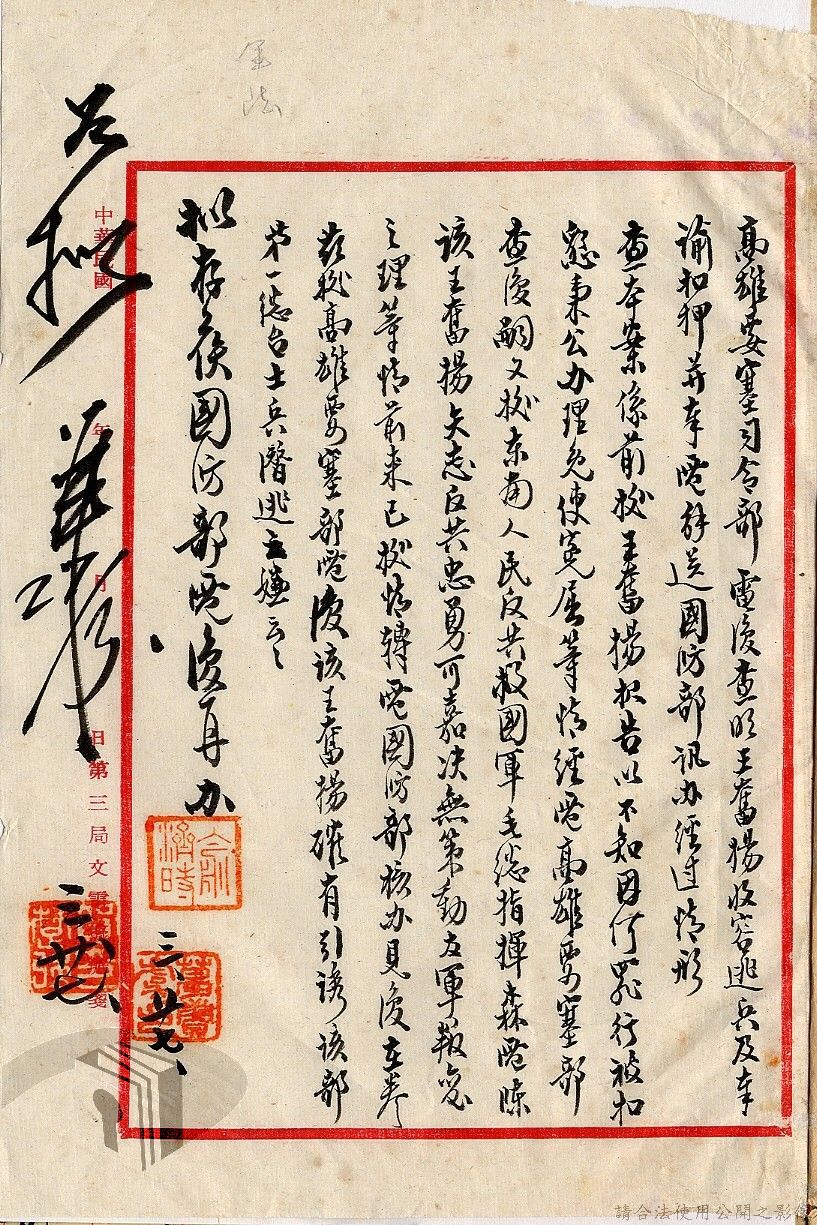 高雄要塞司令部電復查明王奮揚收容逃兵及奉
諭扣押并奉電移送國防部訊办經过情形
查本案係前據王奮揚报告以不知因何罪行被扣
懇秉公办理免使冤屈等情經电高雄要塞部
查復嗣又據东南人民反共救國軍毛總指揮森电陳
该王奮揚矢志反共忠勇可嘉决無策動友軍叛变
之理等情前来已據情轉电國防部核办見復在卷
兹據高雄要塞部电復该王奮揚確有引诱该部
第一總台士兵潛逃之嫌云云
拟存俟國防部电復再办
三、廿七、
如拟
三、廿七、
中華民國 年 月 日第三局文電 箋
請合法使用公開之影像